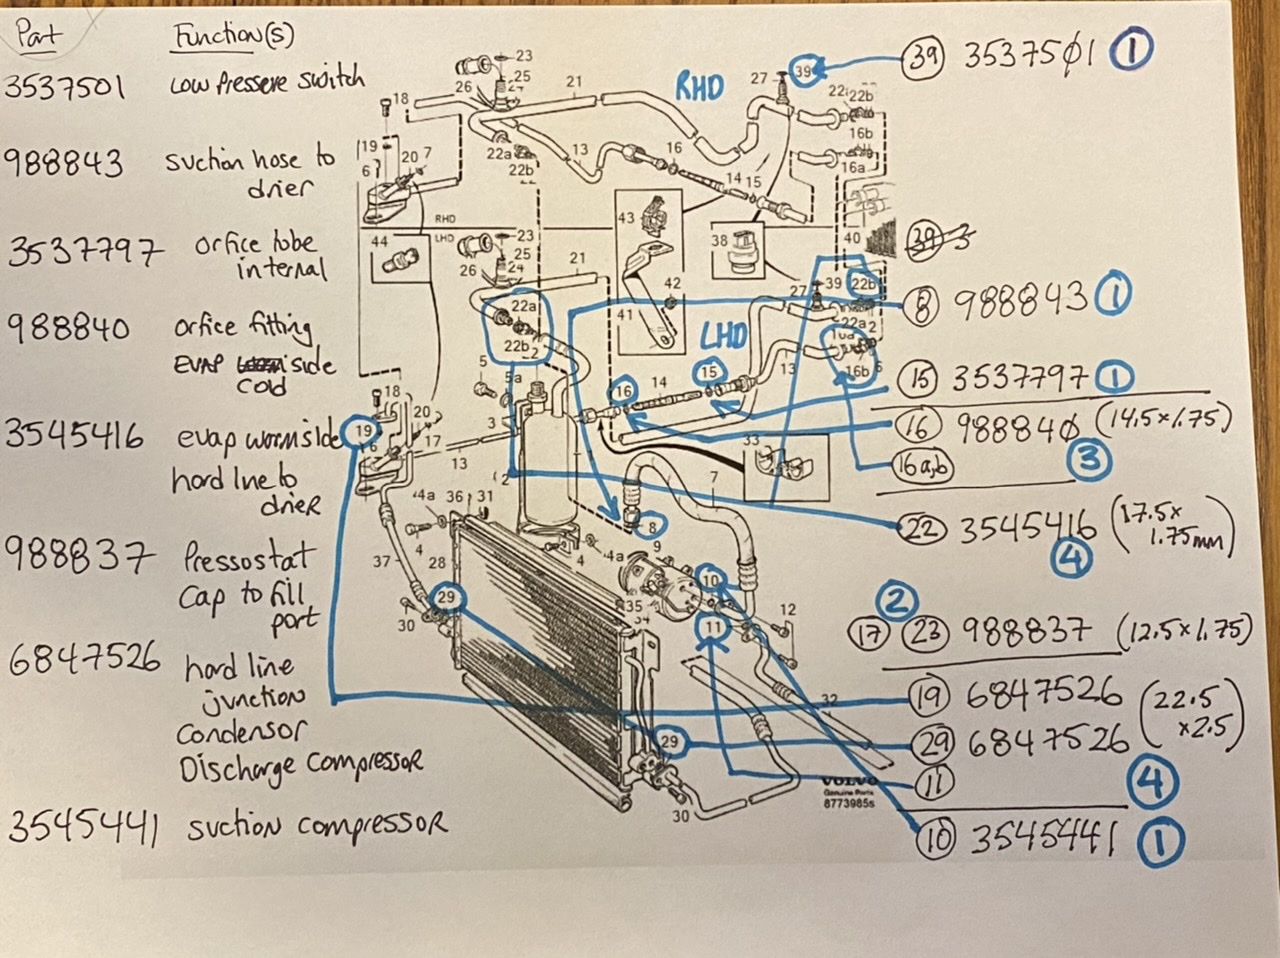 Part Function(s)
3537501 Low Pressere switch
988843 suction hose to
drier
3537797 orfice tube
internal
988840 orfice fitting
EVAP side
cold
3545416 evap warm side
hard line to
drier
988837 Pressostat
Cap to fill
port
6847526 hard line
junction
Condensor
Discharge Compressor
3545441 suction compressor
RHD
LHD
RHD
LHD
23
25
24
26
21
18
19
6
20
7
22a
22b
13
16
14
15
27
39
22b
16b
16a
43
38
40
44
23
25
24
26
21
42
41
27
39
22b
22a
22a
22b
16b
13
5
5a
18
20
17
19
3
16
14
15
13
33
7
8
4a
36
31
4
37
28
29
30
9
4a
4
10
35
34
11
12
32
29
30
VOLVO
Genuine Parts
8773985s
39 3537501 1
8 988843 1
15 3537797 1
16 988840 (14.5x1.75)
16a,b 3
22 3545416 (17.5x
1.75mm)
4
2
17 23 988837 (12.5x1.75)
19 6847526 (22.5
x2.5)
29 6847526
11 4
10 3545441 1